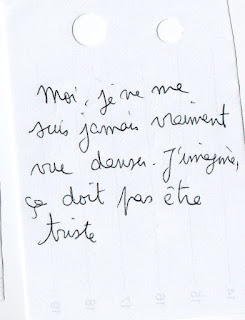 Moi, je ne me
suis jamais vraiment
vue danser. J'imagine,
ça doit pas être
triste